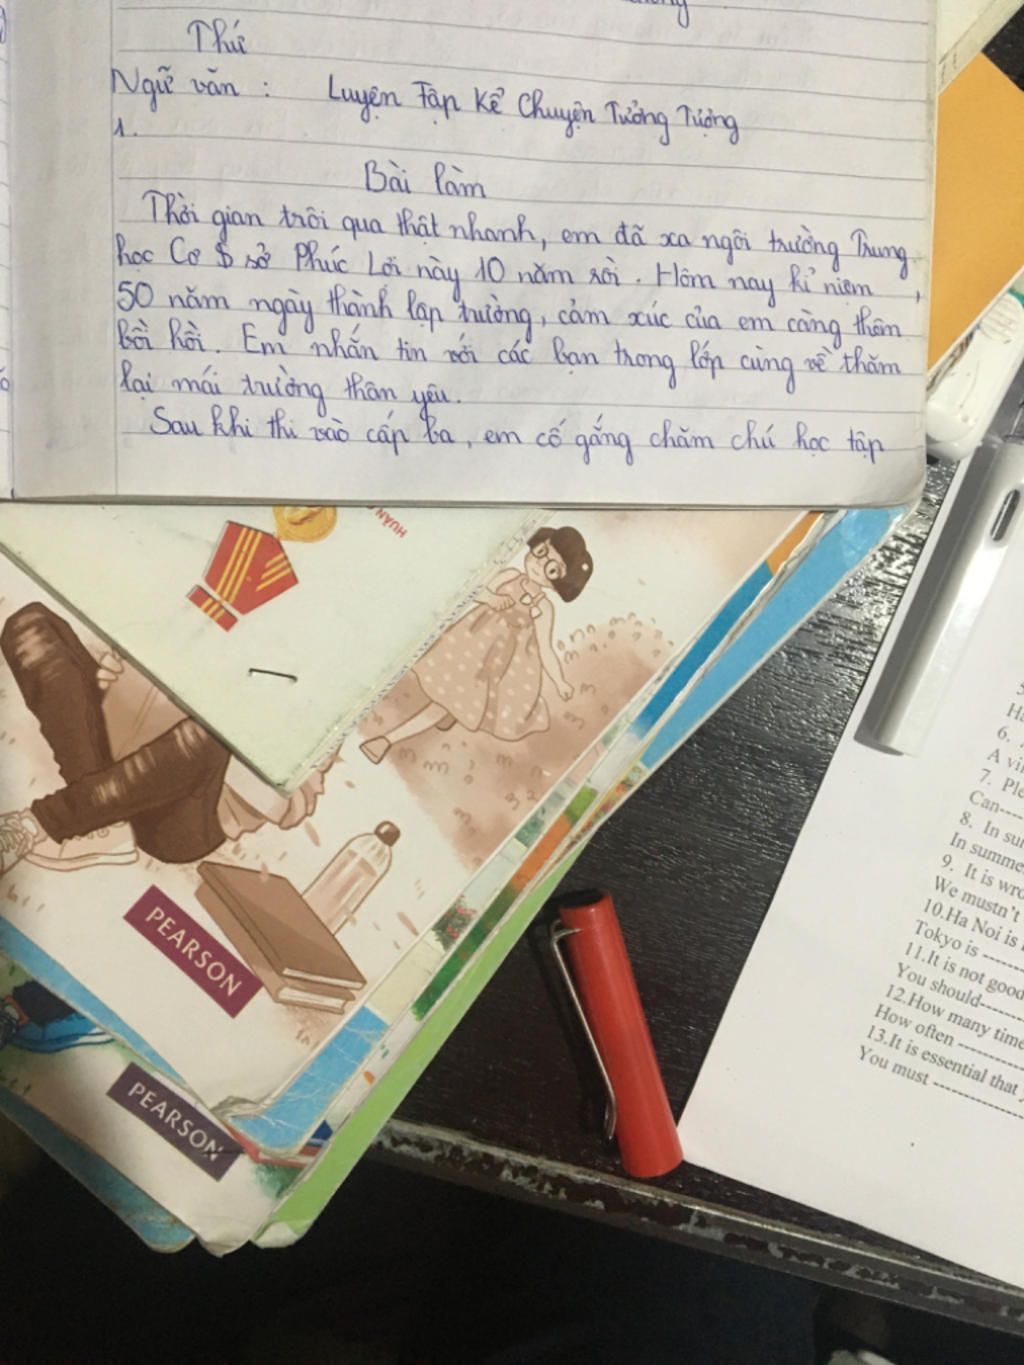 Thứ
Ngữ văn : Luyện Tập Kể Chuyện Tưởng Tượng
1.
Bài làm
Thời gian trôi qua thật nhanh, em đã xa ngôi trường Trung
học Cơ sở Phúc Lợi này 10 năm rồi. Hôm nay kỉ niệm
50 năm ngày thành lập trường, cảm xúc của em càng thêm
bồi hồi. Em nhắn tin với các bạn trong lớp cùng về thăm
lại mái trường thân yêu.
Sau khi thi vào cấp ba, em cố gắng chăm chú học tập
HUÂN
PEARSON
PEARSON
6.
A
7. Ple
Can----
8. In su
In summe
9. It is wro
We mustn't
10.Ha Noi is
Tokyo is --------
11.It is not good
You should------
12.How many time
How often ----------
13.It is essential that
You must --------------